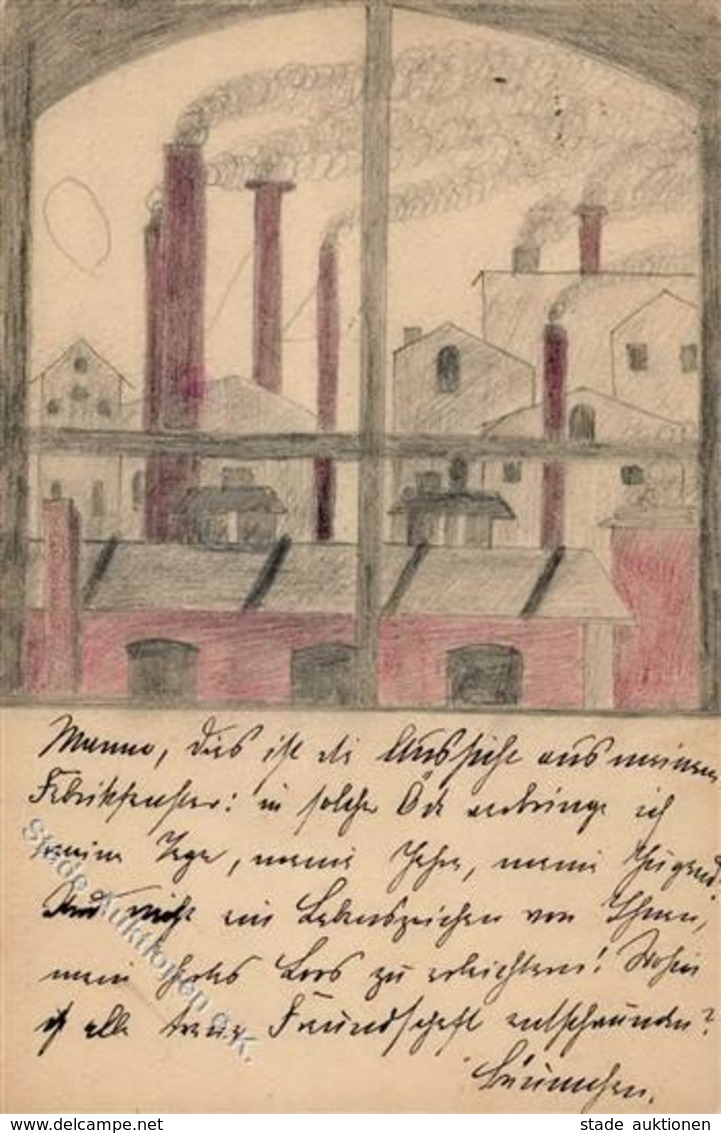 Manno, dies ist die Aussicht aus meinem
Fabrikfenster: in solcher Öde verbringe ich
meine Tage, meine Jahre, meine Jugend.
Und nicht ein Lebenszeichen von Ihnen,
mein hartes Loos zu erleichtern! Wohin
ist alle treue Freundschaft entschwunden?
Stade Auktionen e.K.
stade auktionen